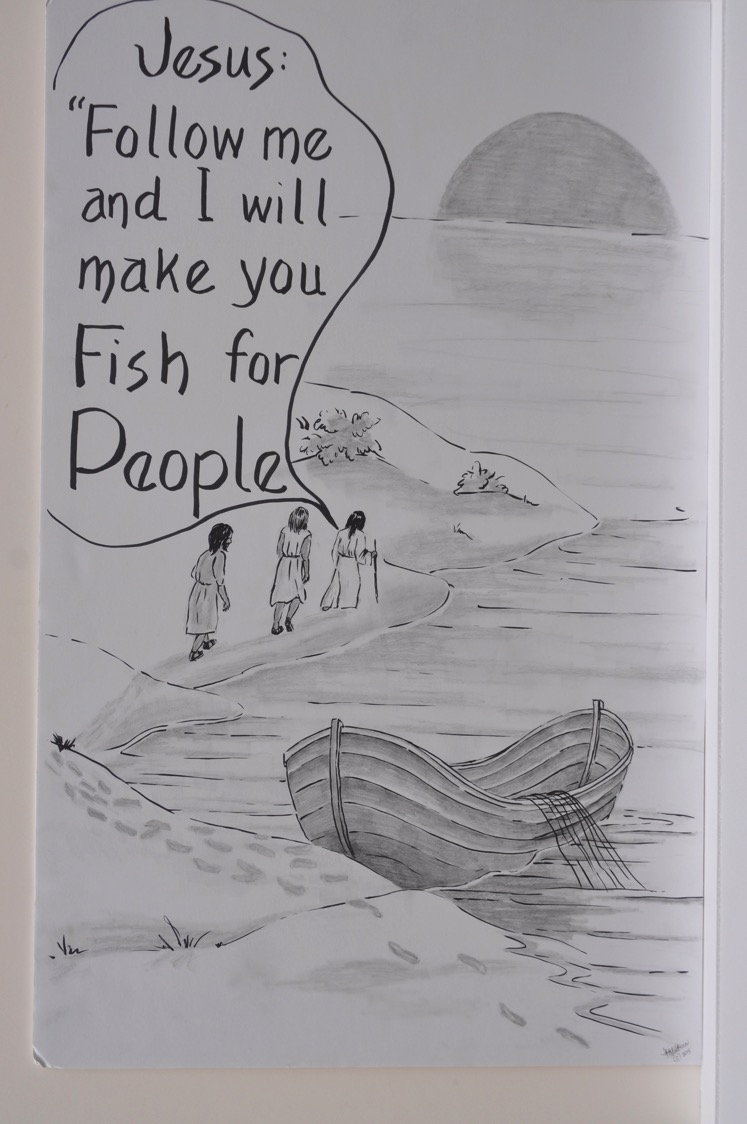 Jesus:
"Follow me
and I will
make you
Fish for
People